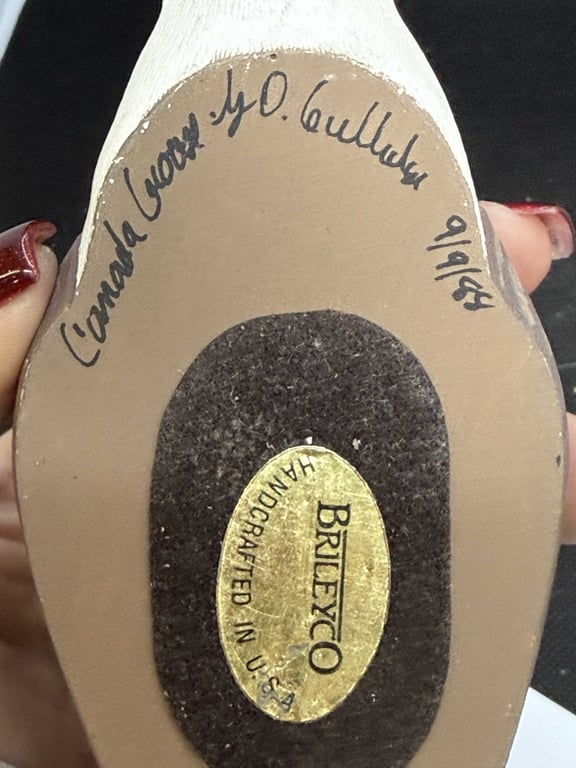 Canada Goose by D. Gulluker
9/9/88
BRILEYCO
HANDCRAFTED IN U.S.A